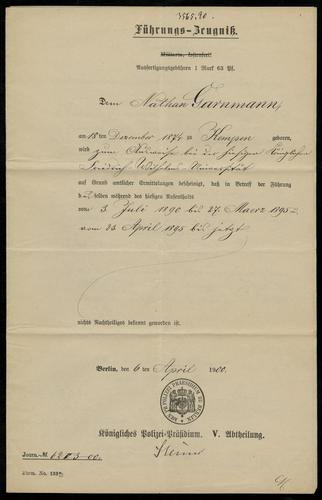 3565.90.
Führungs-Zeugniß.
Militaria, kostenfrei!
Ausfertigungsgebühren 1 Mark 65 Pf.
Dem Nathan Garnmann,
am 18ten Dezember 1874 zu Kempen geboren,
wird zum Ausweise bei der hiesigen Königlichen
Friedrich Wilhelms-Universität
auf Grund amtlicher Ermittelungen bescheinigt, daß in Betreff der Führung
desselben während des hiesigen Aufenthalts
vom 3. Juli 1890 bis 27. Maerz 1895 u.
vom 23 April 1895 bis jetzt
nichts Nachtheiliges bekannt geworden ist.
Berlin, den 6 ten April 1900.
Königliches Polizei-Präsidium. V. Abtheilung.
Journ.-№
Form. No.